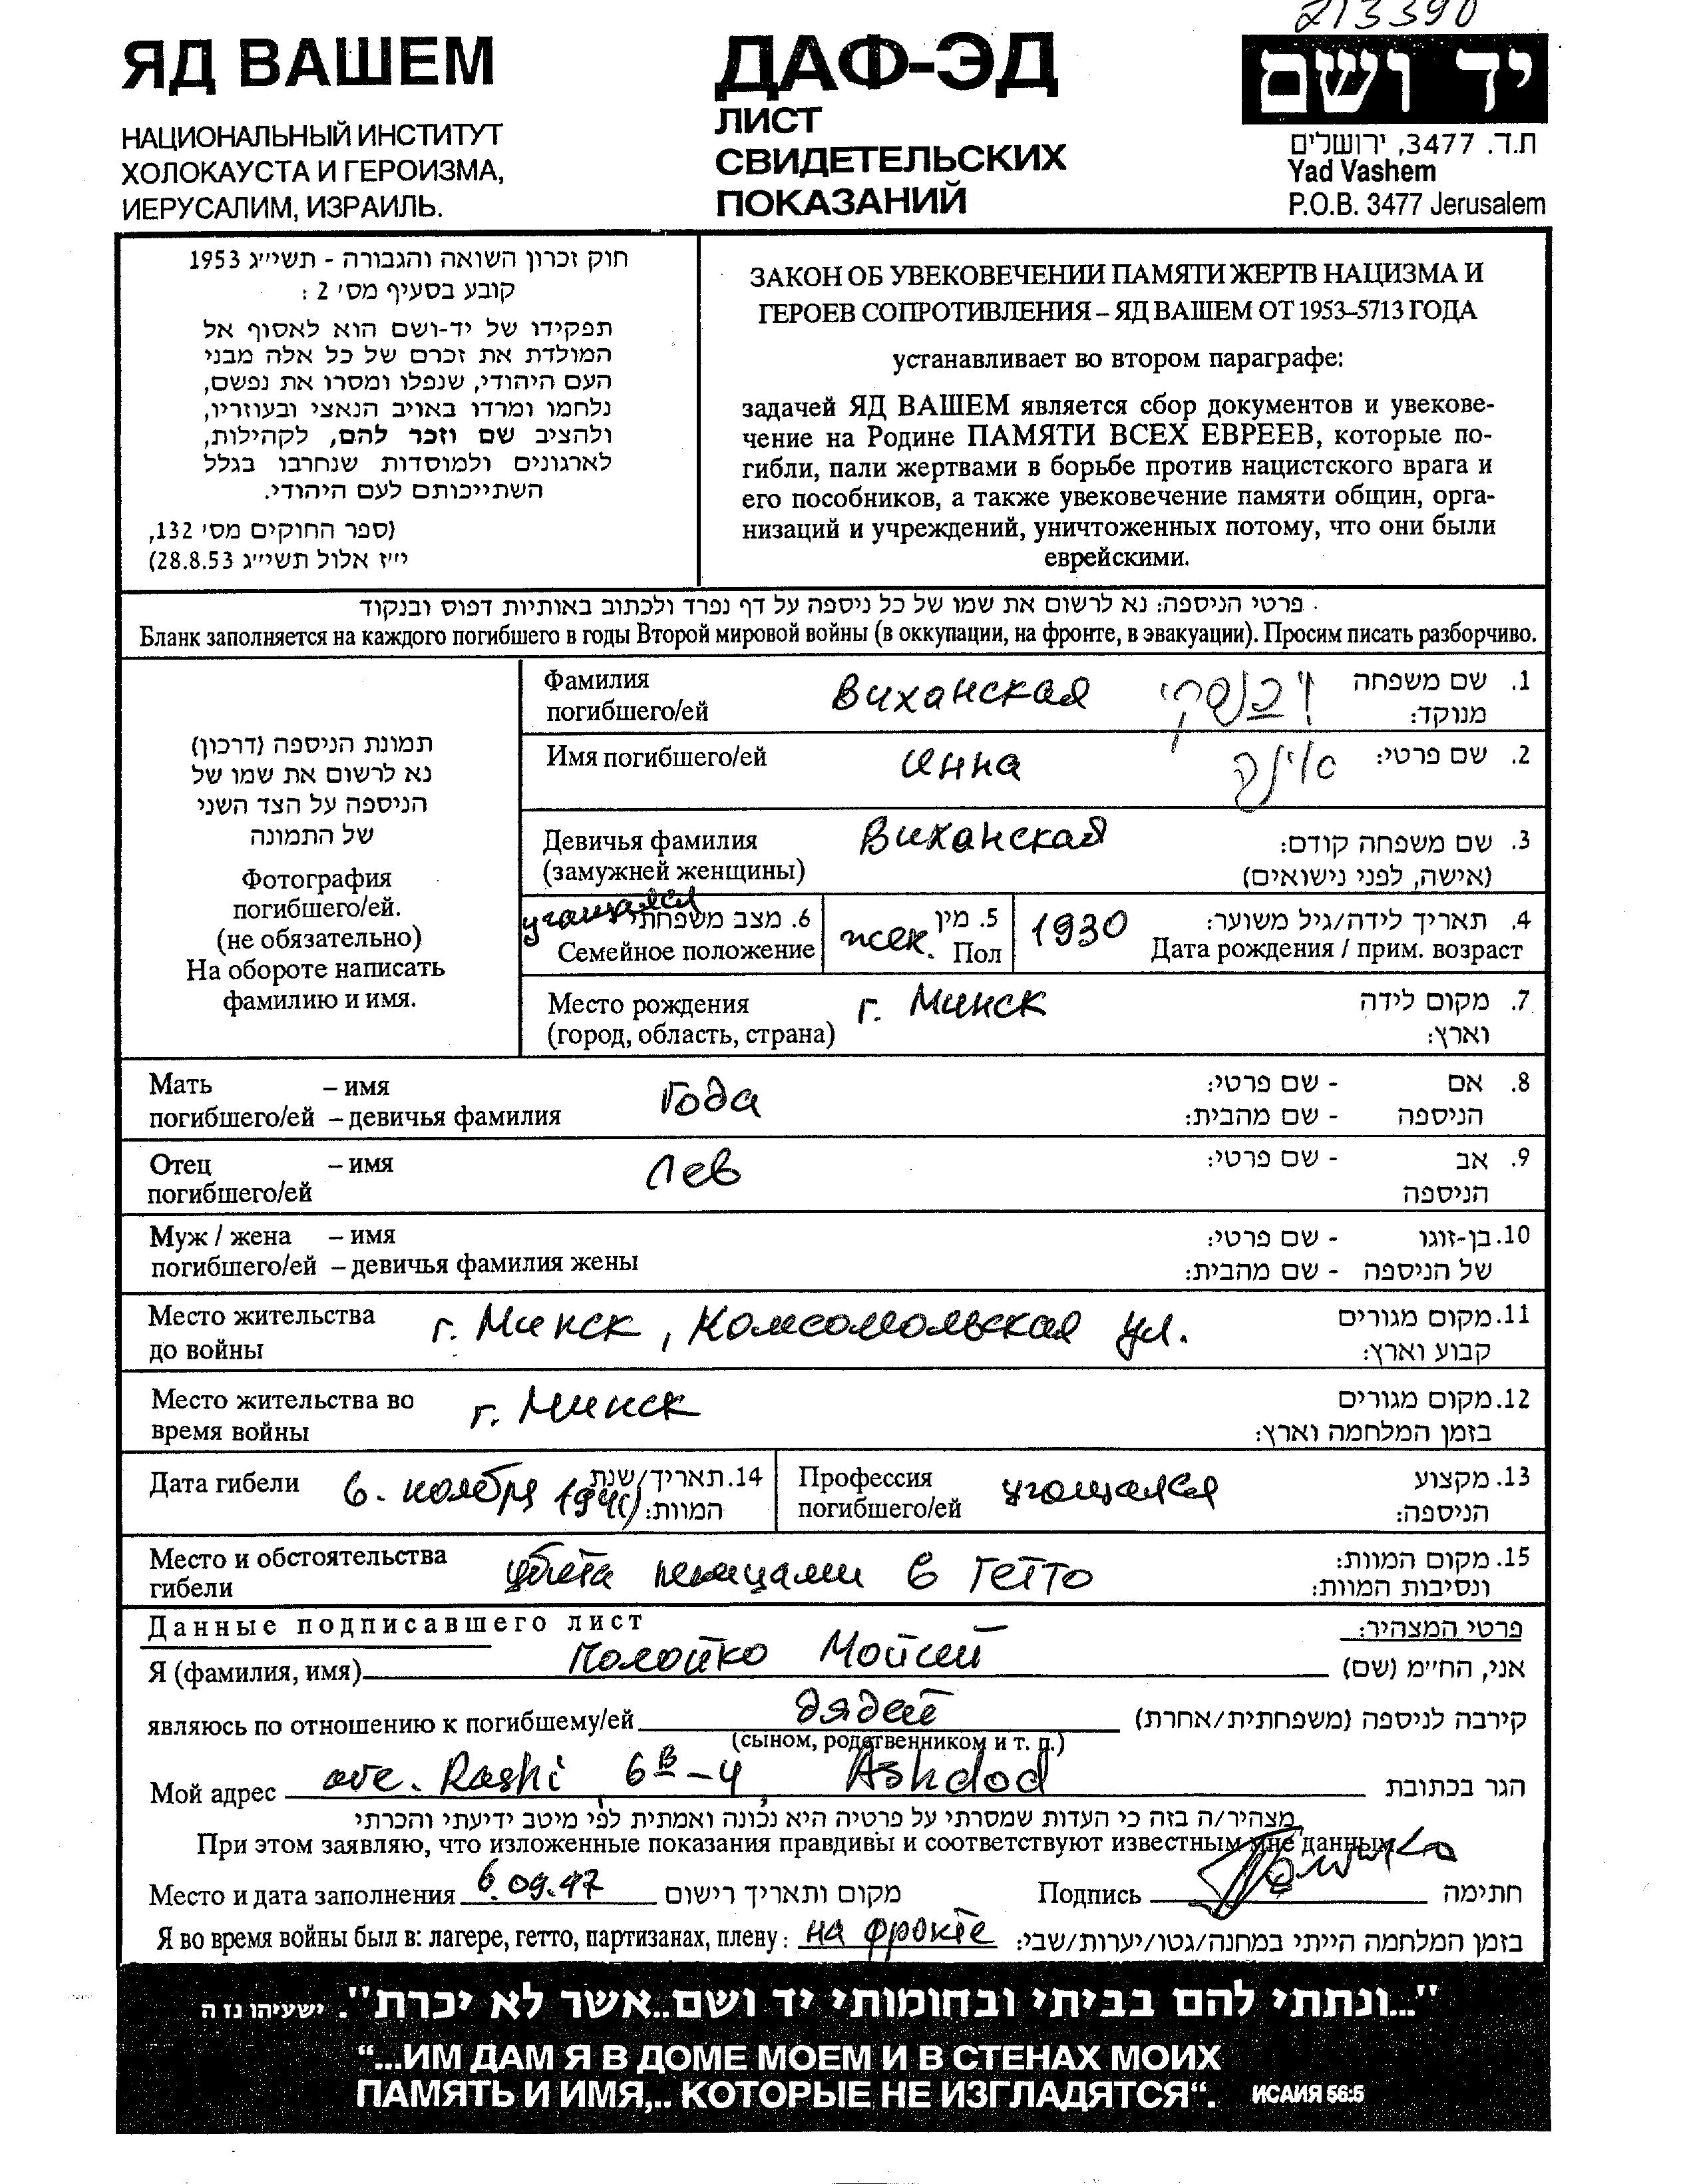 213390
ЯД ВАШЕМ
НАЦИОНАЛЬНЫЙ ИНСТИТУТ
ХОЛОКАУСТА И ГЕРОИЗМА,
ИЕРУСАЛИМ, ИЗРАИЛЬ.
ДАФ-ЭД
ЛИСТ
СВИДЕТЕЛЬСКИХ
ПОКАЗАНИЙ
יד ושם
ת.ד. 3477, ירושלים
Yad Vashem
P.O.B. 3477 Jerusalem
חוק זכרון השואה והגבורה - תשי״ג 1953
קובע בסעיף מס׳ 2 :
תפקידו של יד-ושם הוא לאסוף אל
המולדת את זכרם של כל אלה מבני
העם היהודי, שנפלו ומסרו את נפשם,
נלחמו ומרדו באויב הנאצי ובעוזריו,
ולהציב שם וזכר להם, לקהילות,
לארגונים ולמוסדות שנחרבו בגלל
השתייכותם לעם היהודי.
(ספר החוקים מס׳ 132,
י״ז אלול תשי״ג 28.8.53)
ЗАКОН ОБ УВЕКОВЕЧЕНИИ ПАМЯТИ ЖЕРТВ НАЦИЗМА И
ГЕРОЕВ СОПРОТИВЛЕНИЯ – ЯД ВАШЕМ ОТ 1953–5713 ГОДА
устанавливает во втором параграфе:
задачей ЯД ВАШЕМ является сбор документов и увекове-
чение на Родине ПАМЯТИ ВСЕХ ЕВРЕЕВ, которые по-
гибли, пали жертвами в борьбе против нацистского врага и
его пособников, а также увековечение памяти общин, орга-
низаций и учреждений, уничтоженных потому, что они были
еврейскими.
פרטי הניספה: נא לרשום את שמו של כל ניספה על דף נפרד ולכתוב באותיות דפוס ובנקוד
Бланк заполняется на каждого погибшего в годы Второй мировой войны (в оккупации, на фронте, в эвакуации). Просим писать разборчиво.
תמונת הניספה (דרכון)
נא לרשום את שמו של
הניספה על הצד השני
של התמונה
Фотография
погибшего/ей.
(не обязательно)
На обороте написать
фамилию и имя.
Фамилия Виханская 1. שם משפחה
погибшего/ей מנוקד:
Имя погибшего/ей Инна אינה 2. שם פרטי:
Девичья фамилия Виханская 3. שם משפחה קודם:
(замужней женщины) (אישה, לפני נישואים)
учащаяся 6. מצב משפחתי 5. מין 1930 4. תאריך לידה/גיל משוער:
Семейное положение жек. Пол Дата рождения / прим. возраст
Место рождения г. Минск 7. מקום לידה
(город, область, страна) וארץ:
Мать – имя Года 8. אם - שם פרטי:
погибшего/ей – девичья фамилия הניספה - שם מהבית:
Отец – имя Лев 9. אב - שם פרטי:
погибшего/ей הניספה
Муж / жена – имя 10. בן-זוגו - שם פרטי:
погибшего/ей – девичья фамилия жены של הניספה - שם מהבית:
Место жительства г. Минск, Комсомольская ул. 11. מקום מגורים
до войны קבוע וארץ:
Место жительства во г. Минск 12. מקום מגורים
время войны בזמן המלחמה וארץ:
Дата гибели 6. ноября 1941 14. תאריך/שנת המוות: Профессия учащаяся 13. מקצוע
погибшего/ей הניספה:
Место и обстоятельства убита немцами в гетто 15. מקום המוות:
гибели ונסיבות המוות:
Данные подписавшего лист פרטי המצהיר:
Я (фамилия, имя) Полойко Мойсей אני, הח״מ (שם)
являюсь по отношению к погибшему/ей дядей קירבה לניספה (משפחתית/אחרת)
(сыном, родственником и т. п.)
Мой адрес ave. Rashi 6В–4, Ashdod הגר בכתובת
מצהיר/ה בזה כי העדות שמסרתי על פרטיה היא נכונה ואמתית לפי מיטב ידיעתי והכרתי
При этом заявляю, что изложенные показания правдивы и соответствуют известным мне данным.
Место и дата заполнения 6.09.97 מקום ותאריך רישום Подпись חתימה
Я во время войны был в: лагере, гетто, партизанах, плену: на фронте בזמן המלחמה הייתי במחנה/גטו/יערות/שבי:
"...ונתתי להם בביתי ובחומותי יד ושם...אשר לא יכרת". ישעיהו נז ה
“...ИМ ДАМ Я В ДОМЕ МОЕМ И В СТЕНАХ МОИХ
ПАМЯТЬ И ИМЯ,.. КОТОРЫЕ НЕ ИЗГЛАДЯТСЯ“. ИСАИЯ 56:5